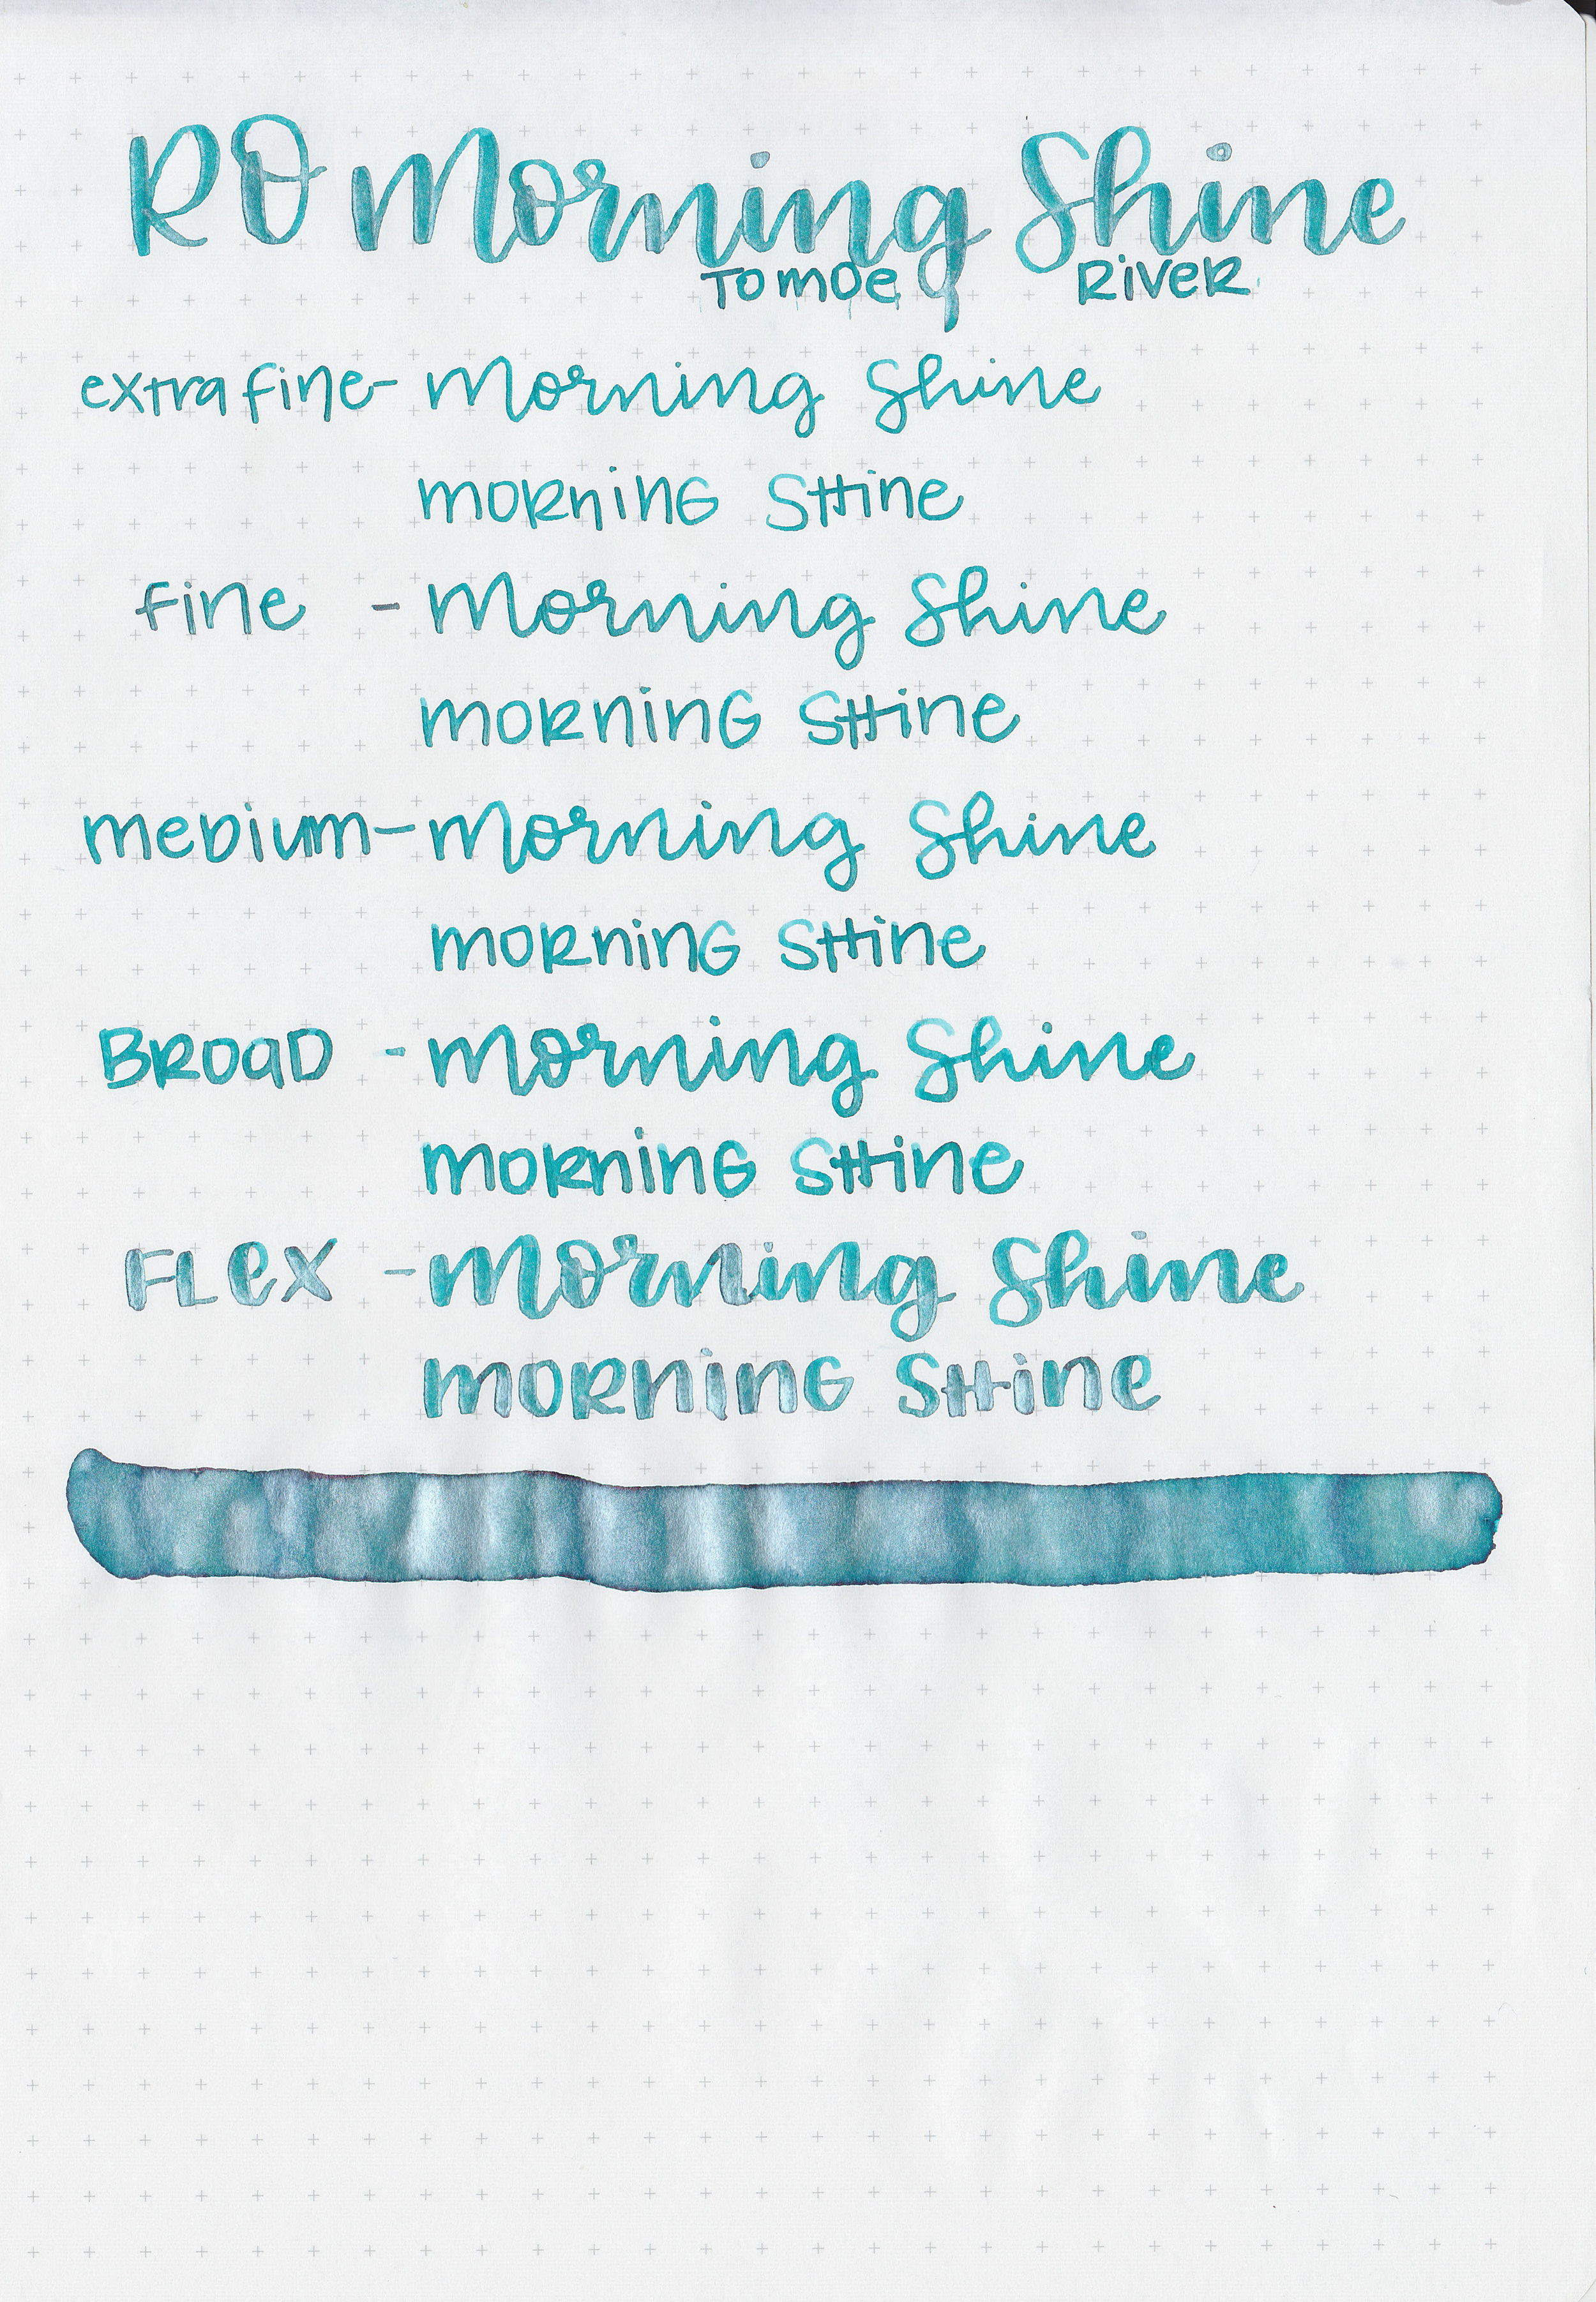 RO Morning Shine
Tomoe River
extra fine - Morning Shine
morning Shine
fine - Morning Shine
morning Shine
medium - Morning Shine
morning Shine
Broad - Morning Shine
morning Shine
Flex - Morning Shine
morning Shine